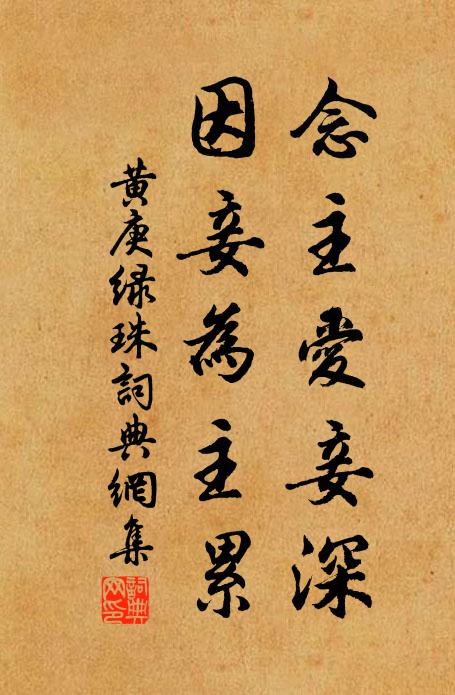 念主愛妾深
因妾為主累
黄庚緑珠詞典網集
詞典网印